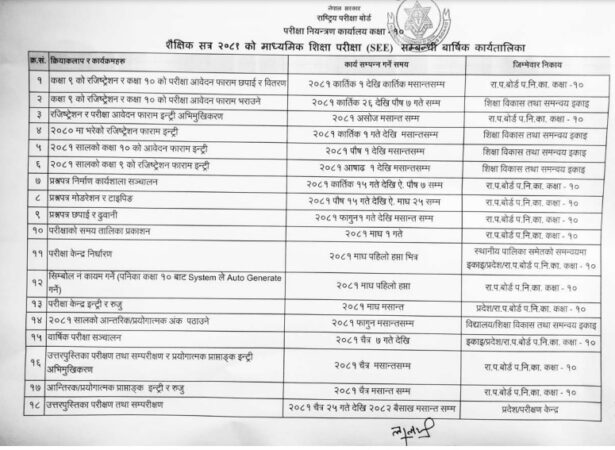 नेपाल सरकार
राष्ट्रिय परीक्षा बोर्ड
परीक्षा नियन्त्रण कार्यालय कक्षा -१०
शैक्षिक सत्र २०८१ को माध्यमिक शिक्षा परीक्षा (SEE) सम्बन्धी बार्षिक कार्यतालिका
क्र.सं. क्रियाकलाप र कार्यक्रमहरु कार्य सम्पन्न गर्ने समय जिम्मेवार निकाय
१ कक्षा ९ को रजिष्ट्रेशन र कक्षा १० को परीक्षा आवेदन फाराम छपाई र वितरण २०८१ कार्तिक १ देखि कार्तिक मसान्तसम्म रा.प.बोर्ड प.नि.का. कक्षा -१०
२ कक्षा ९ को रजिष्ट्रेशन र कक्षा १० को परीक्षा आवेदन फाराम भराउने २०८१ कार्तिक २६ देखि पौष ७ गते सम्म शिक्षा विकास तथा समन्वय इकाइ
३ रजिष्ट्रेशन र परीक्षा आवेदन फाराम इन्ट्री अभिमुखिकरण २०८१ असोज मसान्त सम्म रा.प.बोर्ड प.नि.का. कक्षा -१०
४ २०८० मा भरेको रजिष्ट्रेशन फाराम इन्ट्री २०८१ कार्तिक १ गते देखि मसान्तसम्म शिक्षा विकास तथा समन्वय इकाइ
५ २०८१ सालको कक्षा १० को आवेदन फाराम इन्ट्री २०८१ पौष १ देखि मसान्तसम्म शिक्षा विकास तथा समन्वय इकाइ
६ २०८१ सालको कक्षा ९ को रजिष्ट्रेशन फाराम इन्ट्री २०८१ आषाढ १ देखि मसान्तसम्म शिक्षा विकास तथा समन्वय इकाइ
७ प्रश्नपत्र निर्माण कार्यशाला सञ्चालन २०८१ कार्तिक १५ गते देखि ऐ. पौष ७ सम्म रा.प.बोर्ड प.नि.का. कक्षा -१०
८ प्रश्नपत्र मोडरेशन र टाइपिङ २०८१ पौष १५ गते देखि ऐ. माघ २५ सम्म रा.प.बोर्ड प.नि.का. कक्षा -१०
९ प्रश्नपत्र छपाई र ढुवानी २०८१ फागुन१ गते देखि मसान्त सम्म रा.प.बोर्ड प.नि.का. कक्षा -१०
१० परीक्षाको समय तालिका प्रकाशन २०८१ माघ १ गते रा.प.बोर्ड प.नि.का. कक्षा -१०
११ परीक्षा केन्द्र निर्धारण २०८१ माघ पहिलो हप्ता भित्र स्थानीय पालिका समेतको समन्वयमा
इकाइ/प्रदेश/रा.प.बोर्ड प.नि.का. कक्षा -१०
१२ सिम्बोल नं कायम गर्ने (पनिका कक्षा १० बाट System ले Auto Generate
गर्ने) २०८१ माघ पहिलो हप्ता रा.प.बोर्ड प.नि.का. कक्षा -१०
१३ परीक्षा केन्द्र इन्ट्री र रुजु २०८१ माघ मसान्त प्रदेश/रा.प.बोर्ड प.नि.का. कक्षा -१०
१४ २०८१ सालको आन्तरिक/प्रयोगात्मक अंक पठाउने २०८१ फागुन मसान्तसम्म विद्यालय/शिक्षा विकास तथा समन्वय इकाइ
१५ वार्षिक परीक्षा सञ्चालन २०८१ चैत्र ७ गते देखि इकाइ/प्रदेश/रा.प.बोर्ड प.नि.का. कक्षा -१०
१६ उत्तरपुस्तिका परीक्षण तथा सम्परीक्षण र प्रयोगात्मक प्राप्ताङ्क इन्ट्री
अभिमुखिकरण २०८१ चैत्र मसान्तसम्म रा.प.बोर्ड प.नि.का. कक्षा -१०
१७ आन्तिरक/प्रयोगात्मक प्राप्ताङ्क इन्ट्री र रुजु २०८१ चैत्र मसान्त सम्म रा.प.बोर्ड प.नि.का. कक्षा -१०
१८ उत्तरपुस्तिका परीक्षण तथा सम्परीक्षण २०८१ चैत्र २५ गते देखि २०८२ बैसाख मसान्त सम्म प्रदेश/परीक्षण केन्द्र